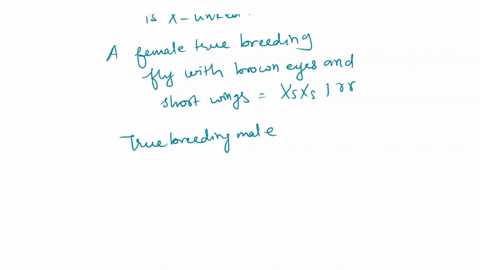 is X-
A female true breeding
fly with brown eyes and
short wings = XsXs | rr
True breeding male